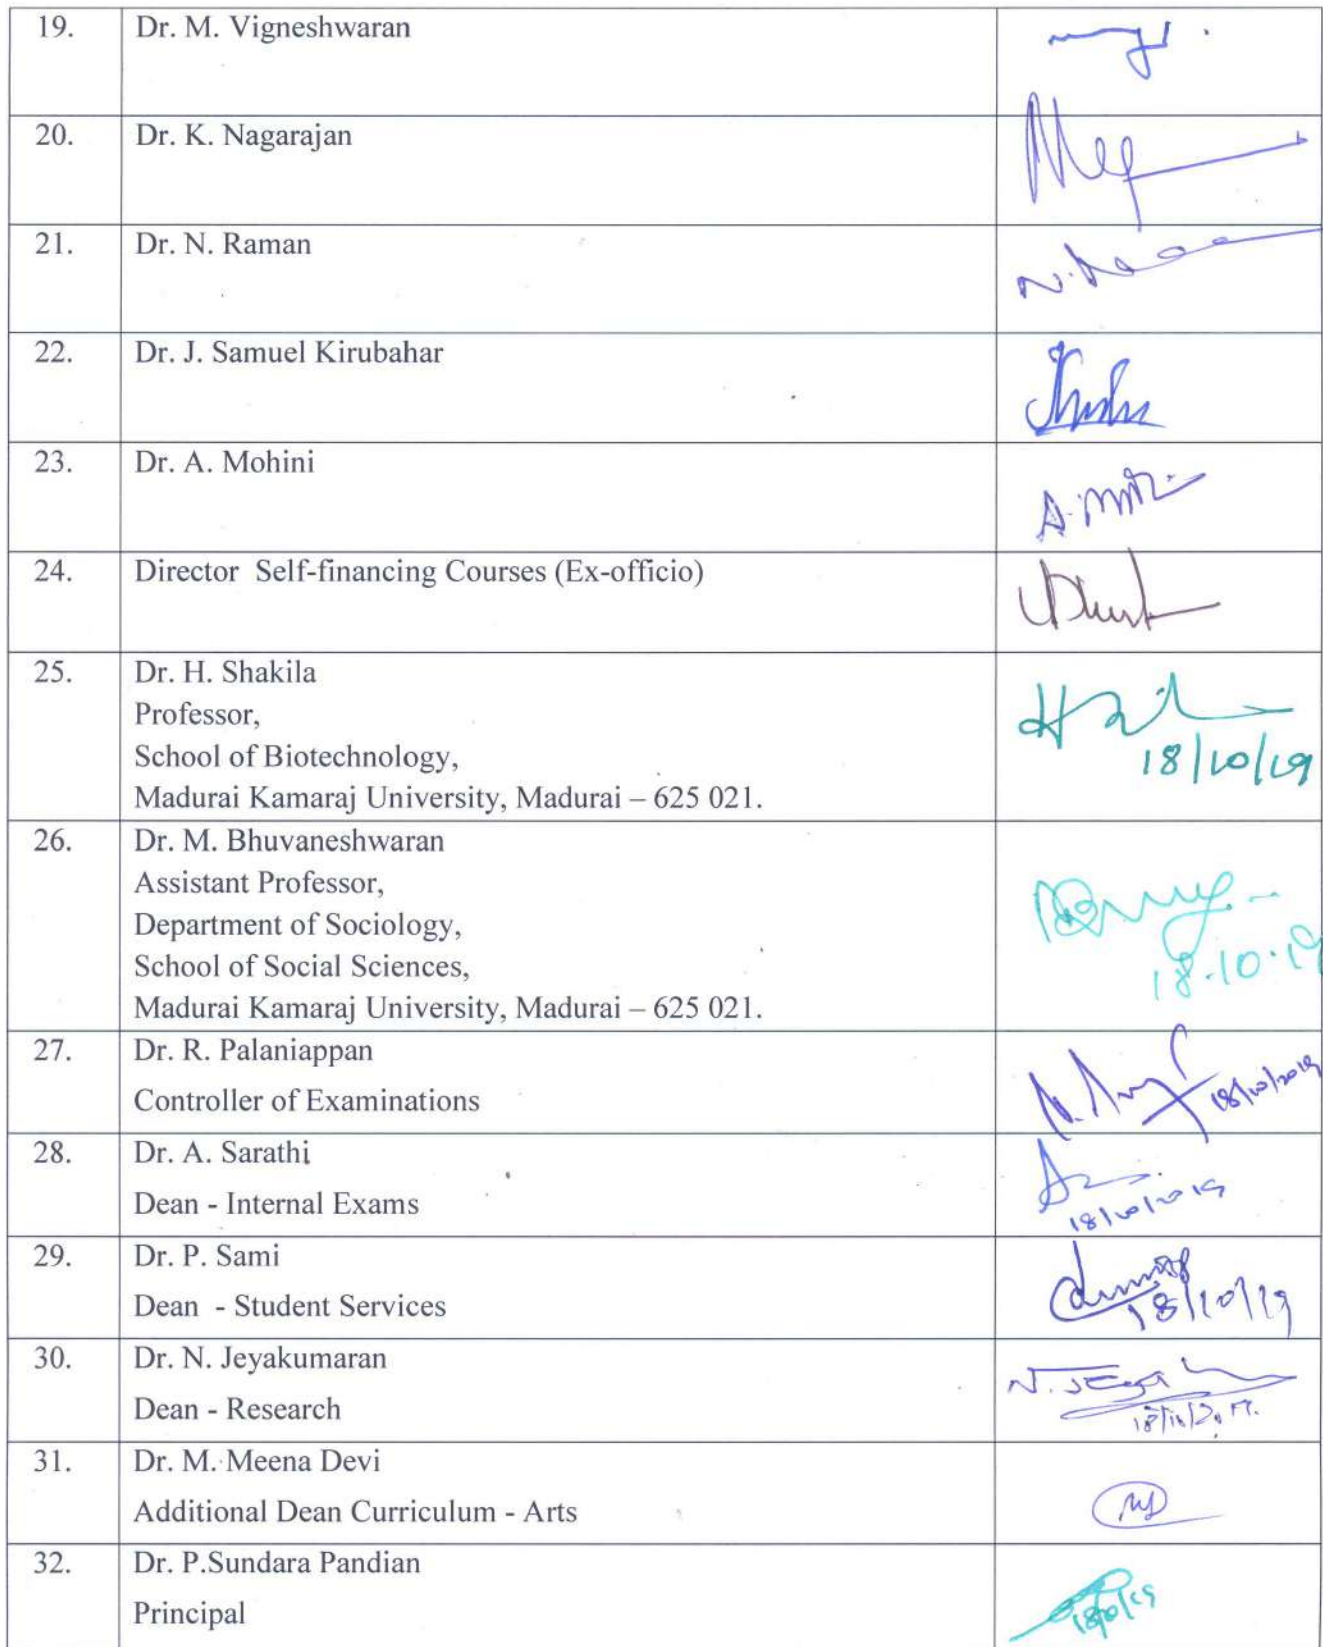 19. Dr. M. Vigneshwaran
20. Dr. K. Nagarajan
21. Dr. N. Raman
22. Dr. J. Samuel Kirubahar
23. Dr. A. Mohini
24. Director Self-financing Courses (Ex-officio)
25. Dr. H. Shakila
Professor,
School of Biotechnology,
18/10/19
Madurai Kamaraj University, Madurai – 625 021.
26. Dr. M. Bhuvaneshwaran
Assistant Professor,
Department of Sociology,
School of Social Sciences,
18.10.19
Madurai Kamaraj University, Madurai – 625 021.
27. Dr. R. Palaniappan
18/10/2019
Controller of Examinations
28. Dr. A. Sarathi
Dean - Internal Exams
18/10/2019
29. Dr. P. Sami
Dean - Student Services
18/10/19
30. Dr. N. Jeyakumaran
Dean - Research
31. Dr. M. Meena Devi
Additional Dean Curriculum - Arts
32. Dr. P.Sundara Pandian
Principal